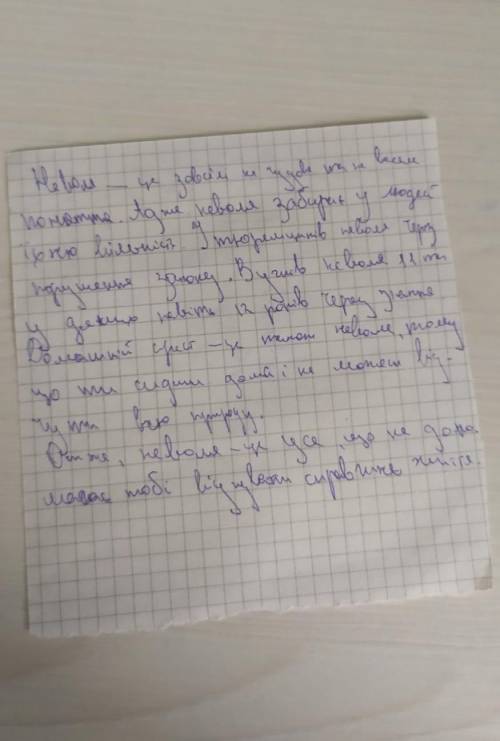 Неволя — це зовсім не чудове та не веселе
поняття. Адже неволя забирає у людей
їхню вільність. У тюремщиків неволя через
порушення закону. В учнів неволя 11 та
у деяких навіть 12 років через знання
Домашній арест — це також неволя, тому
що ти сидиш дома і не можеш від-
чути всю природу.
Отже, неволя — це усе, що не допо
магає тобі відчувати справжнє життя.